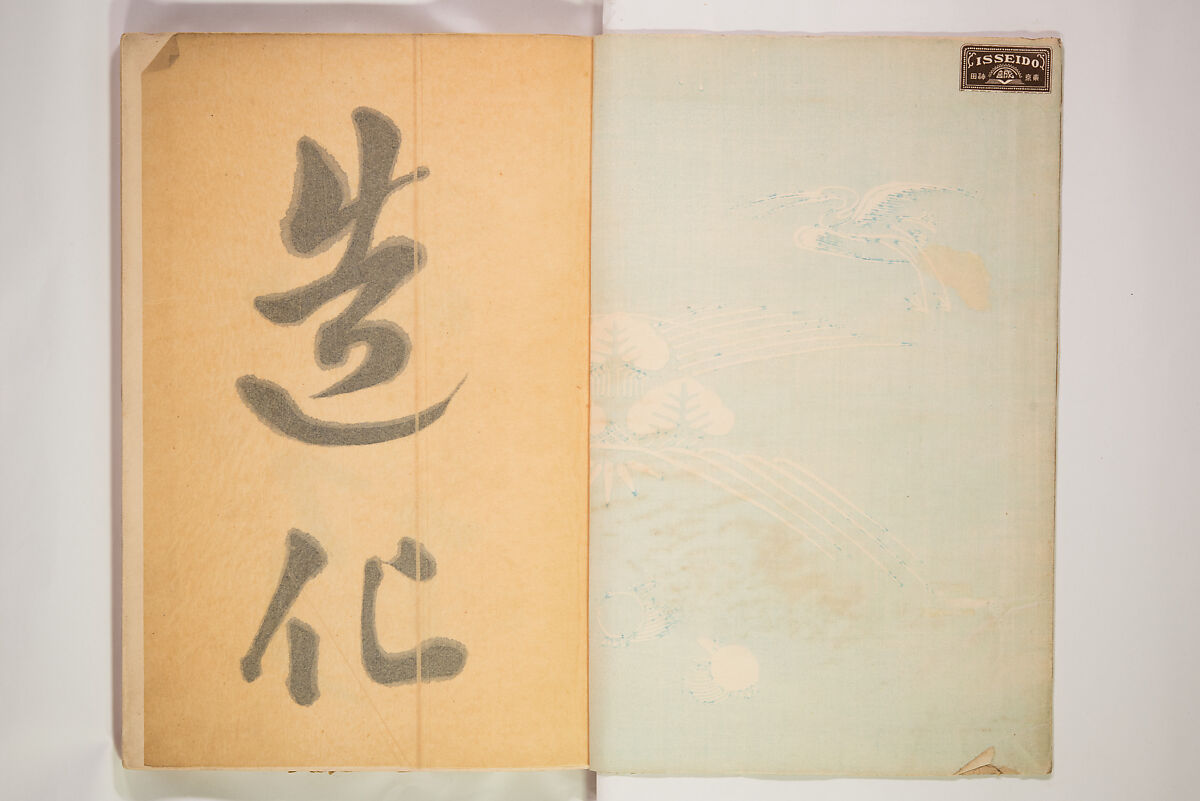 造
化
ISSEIDO
東京 神田